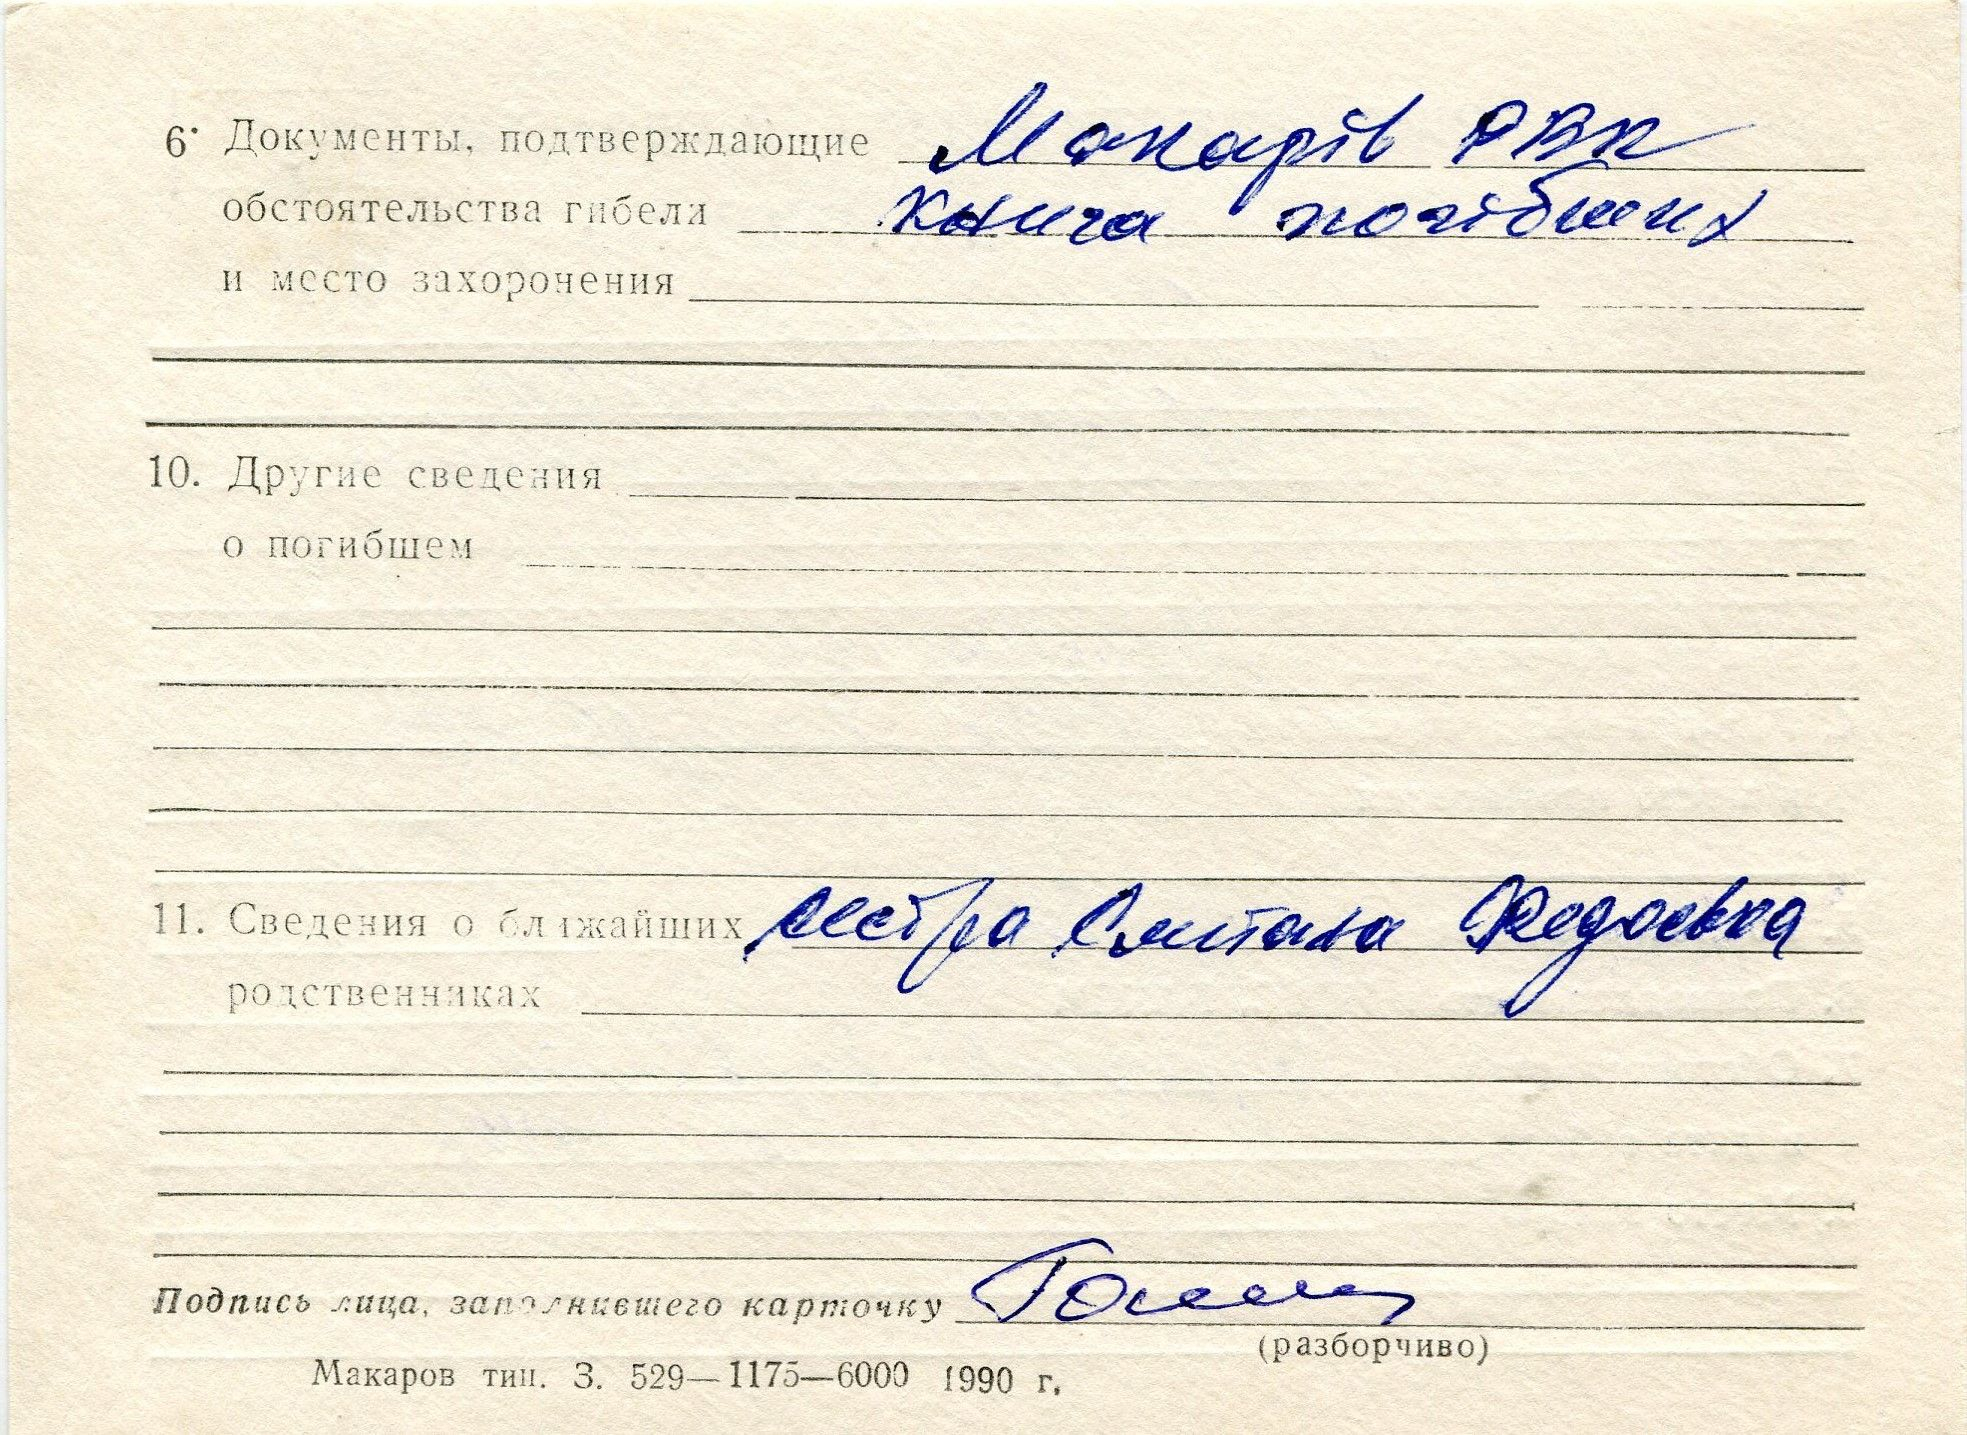 6. Документы, подтверждающие Макарів РВК
обстоятельства гибели книга погібших
и место захоронения
10. Другие сведения
о погибшем
11. Сведения о ближайших сестра Федосівна
родственниках
Подпись лица, заполнившего карточку
(разборчиво)
Макаров тип. З. 529—1175—6000 1990 г.